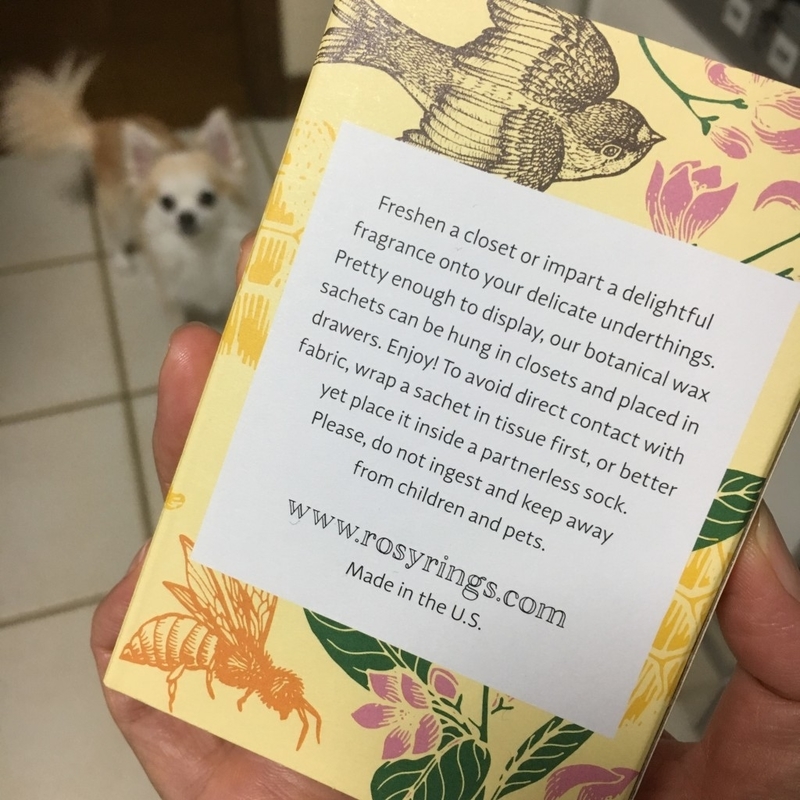 Freshen a closet or impart a delightful
fragrance onto your delicate underthings.
Pretty enough to display, our botanical wax
sachets can be hung in closets and placed in
drawers. Enjoy! To avoid direct contact with
fabric, wrap a sachet in tissue first, or better
yet place it inside a partnerless sock.
Please, do not ingest and keep away
from children and pets.
www.rosyrings.com
Made in the U.S.